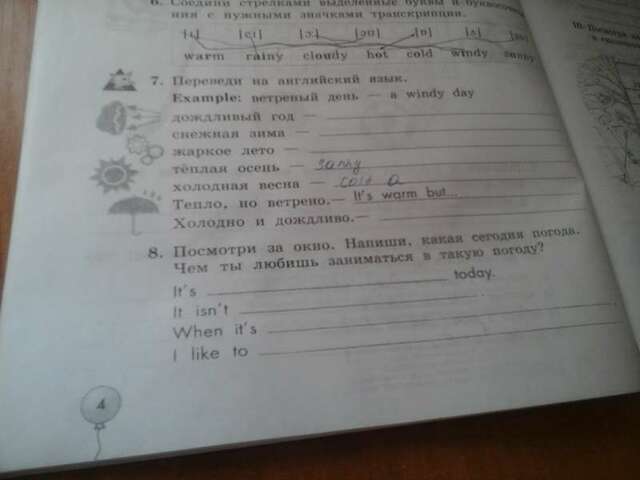 6. Соедини стрелками выделенные буквы и
ния с нужными значками транскрипции.
warm rainy cloudy hot cold windy sunny
7. Переведи на английский язык.
Example: ветреный день — a windy day
дождливый год —
снежная зима —
жаркое лето —
тёплая осень —
холодная весна — cold a
Тепло, но ветрено.— It's warm but...
Холодно и дождливо.—
8. Посмотри за окно. Напиши, какая сегодня погода.
Чем ты любишь заниматься в такую погоду?
It's today.
It isn't
When it's
I like to
4
10. Посмотри